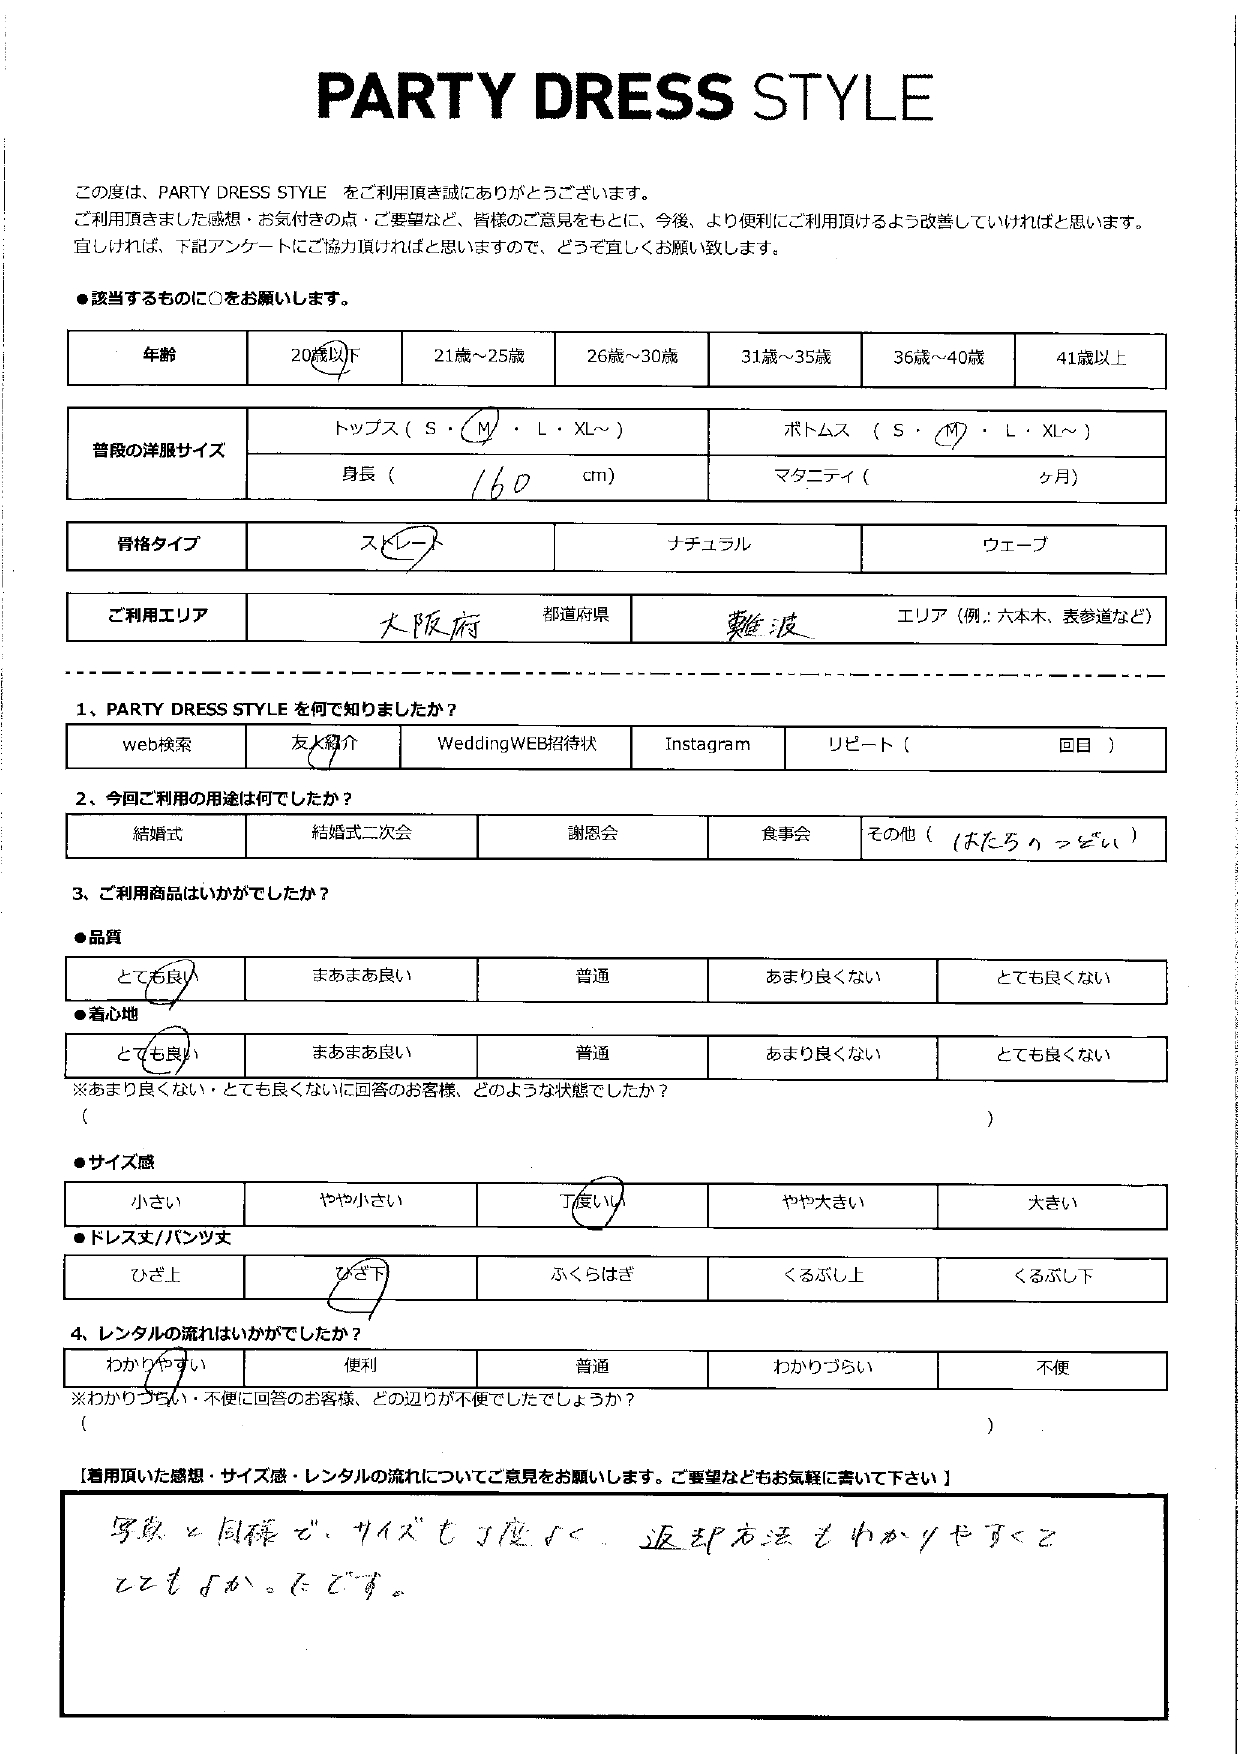 PARTY DRESS STYLE
この度は、PARTY DRESS STYLE　をご利用頂き誠にありがとうございます。
ご利用頂きました感想・お気付きの点・ご要望など、皆様のご意見をもとに、今後、より便利にご利用頂けるよう改善していければと思います。
宜しければ、下記アンケートにご協力頂ければと思いますので、どうぞ宜しくお願い致します。
●該当するものに○をお願いします。
年齢 20歳以下 21歳～25歳 26歳～30歳 31歳～35歳 36歳～40歳 41歳以上
普段の洋服サイズ トップス ( S ・ M ・ L ・ XL～ ) ボトムス ( S ・ M ・ L ・ XL～ )
身長 ( 160 cm) マタニティ ( ヶ月)
骨格タイプ ストレート ナチュラル ウェーブ
ご利用エリア 大阪府 都道府県 難波 エリア（例.: 六本木、表参道など）
1、PARTY DRESS STYLE を何で知りましたか？
web検索 友人紹介 WeddingWEB招待状 Instagram リピート ( 回目 )
2、今回ご利用の用途は何でしたか？
結婚式 結婚式二次会 謝恩会 食事会 その他 ( はたちのつどい )
3、ご利用商品はいかがでしたか？
●品質
とても良い まあまあ良い 普通 あまり良くない とても良くない
●着心地
とても良い まあまあ良い 普通 あまり良くない とても良くない
※あまり良くない・とても良くないに回答のお客様、どのような状態でしたか？
( )
●サイズ感
小さい やや小さい 丁度いい やや大きい 大きい
●ドレス丈/パンツ丈
ひざ上 ひざ下 ふくらはぎ くるぶし上 くるぶし下
4、レンタルの流れはいかがでしたか？
わかりやすい 便利 普通 わかりづらい 不便
※わかりづらい・不便に回答のお客様、どの辺りが不便でしたでしょうか？
( )
【着用頂いた感想・サイズ感・レンタルの流れについてご意見をお願いします。ご要望などもお気軽に書いて下さい 】
写真と同様で、サイズも丁度よく、返却方法もわかりやすくて
とてもよかったです。